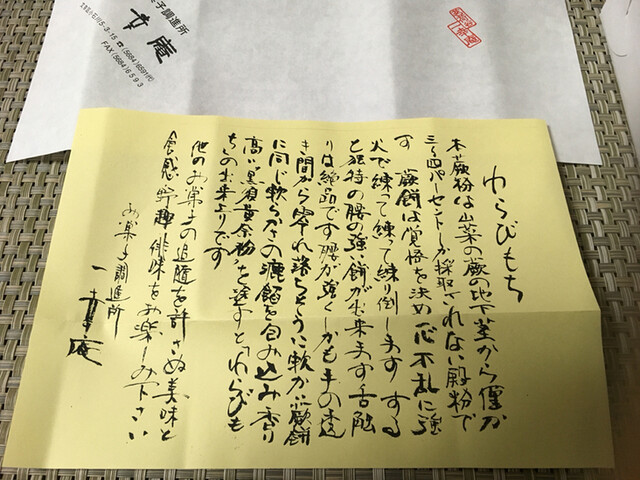 子調進所
一幸庵
文京区小石川5-3-15 ☎(5684)6591㈹
FAX(5684)6593
わらびもち
本蕨粉は山菜の蕨の地下茎から僅か
三〜四パーセントしか採取されない澱粉で
す 蕨餅は覚悟を決め一心不乱に強
火で練って練って練り倒します する
と独特の腰の強い餅が出来ます 舌触
りは絶品です 腰が強くしかも手の透
き間から零れ落ちそうに軟か 蕨餅
に同じ軟らかさの漉餡を包み込み香り
高い黒須黄奈粉を塗すと「わらびも
ち」のお来上りです
他のお菓子の追随を許さぬ美味と
食感 野趣 俳味をお楽しみ下さい
お菓子調進所
一幸庵